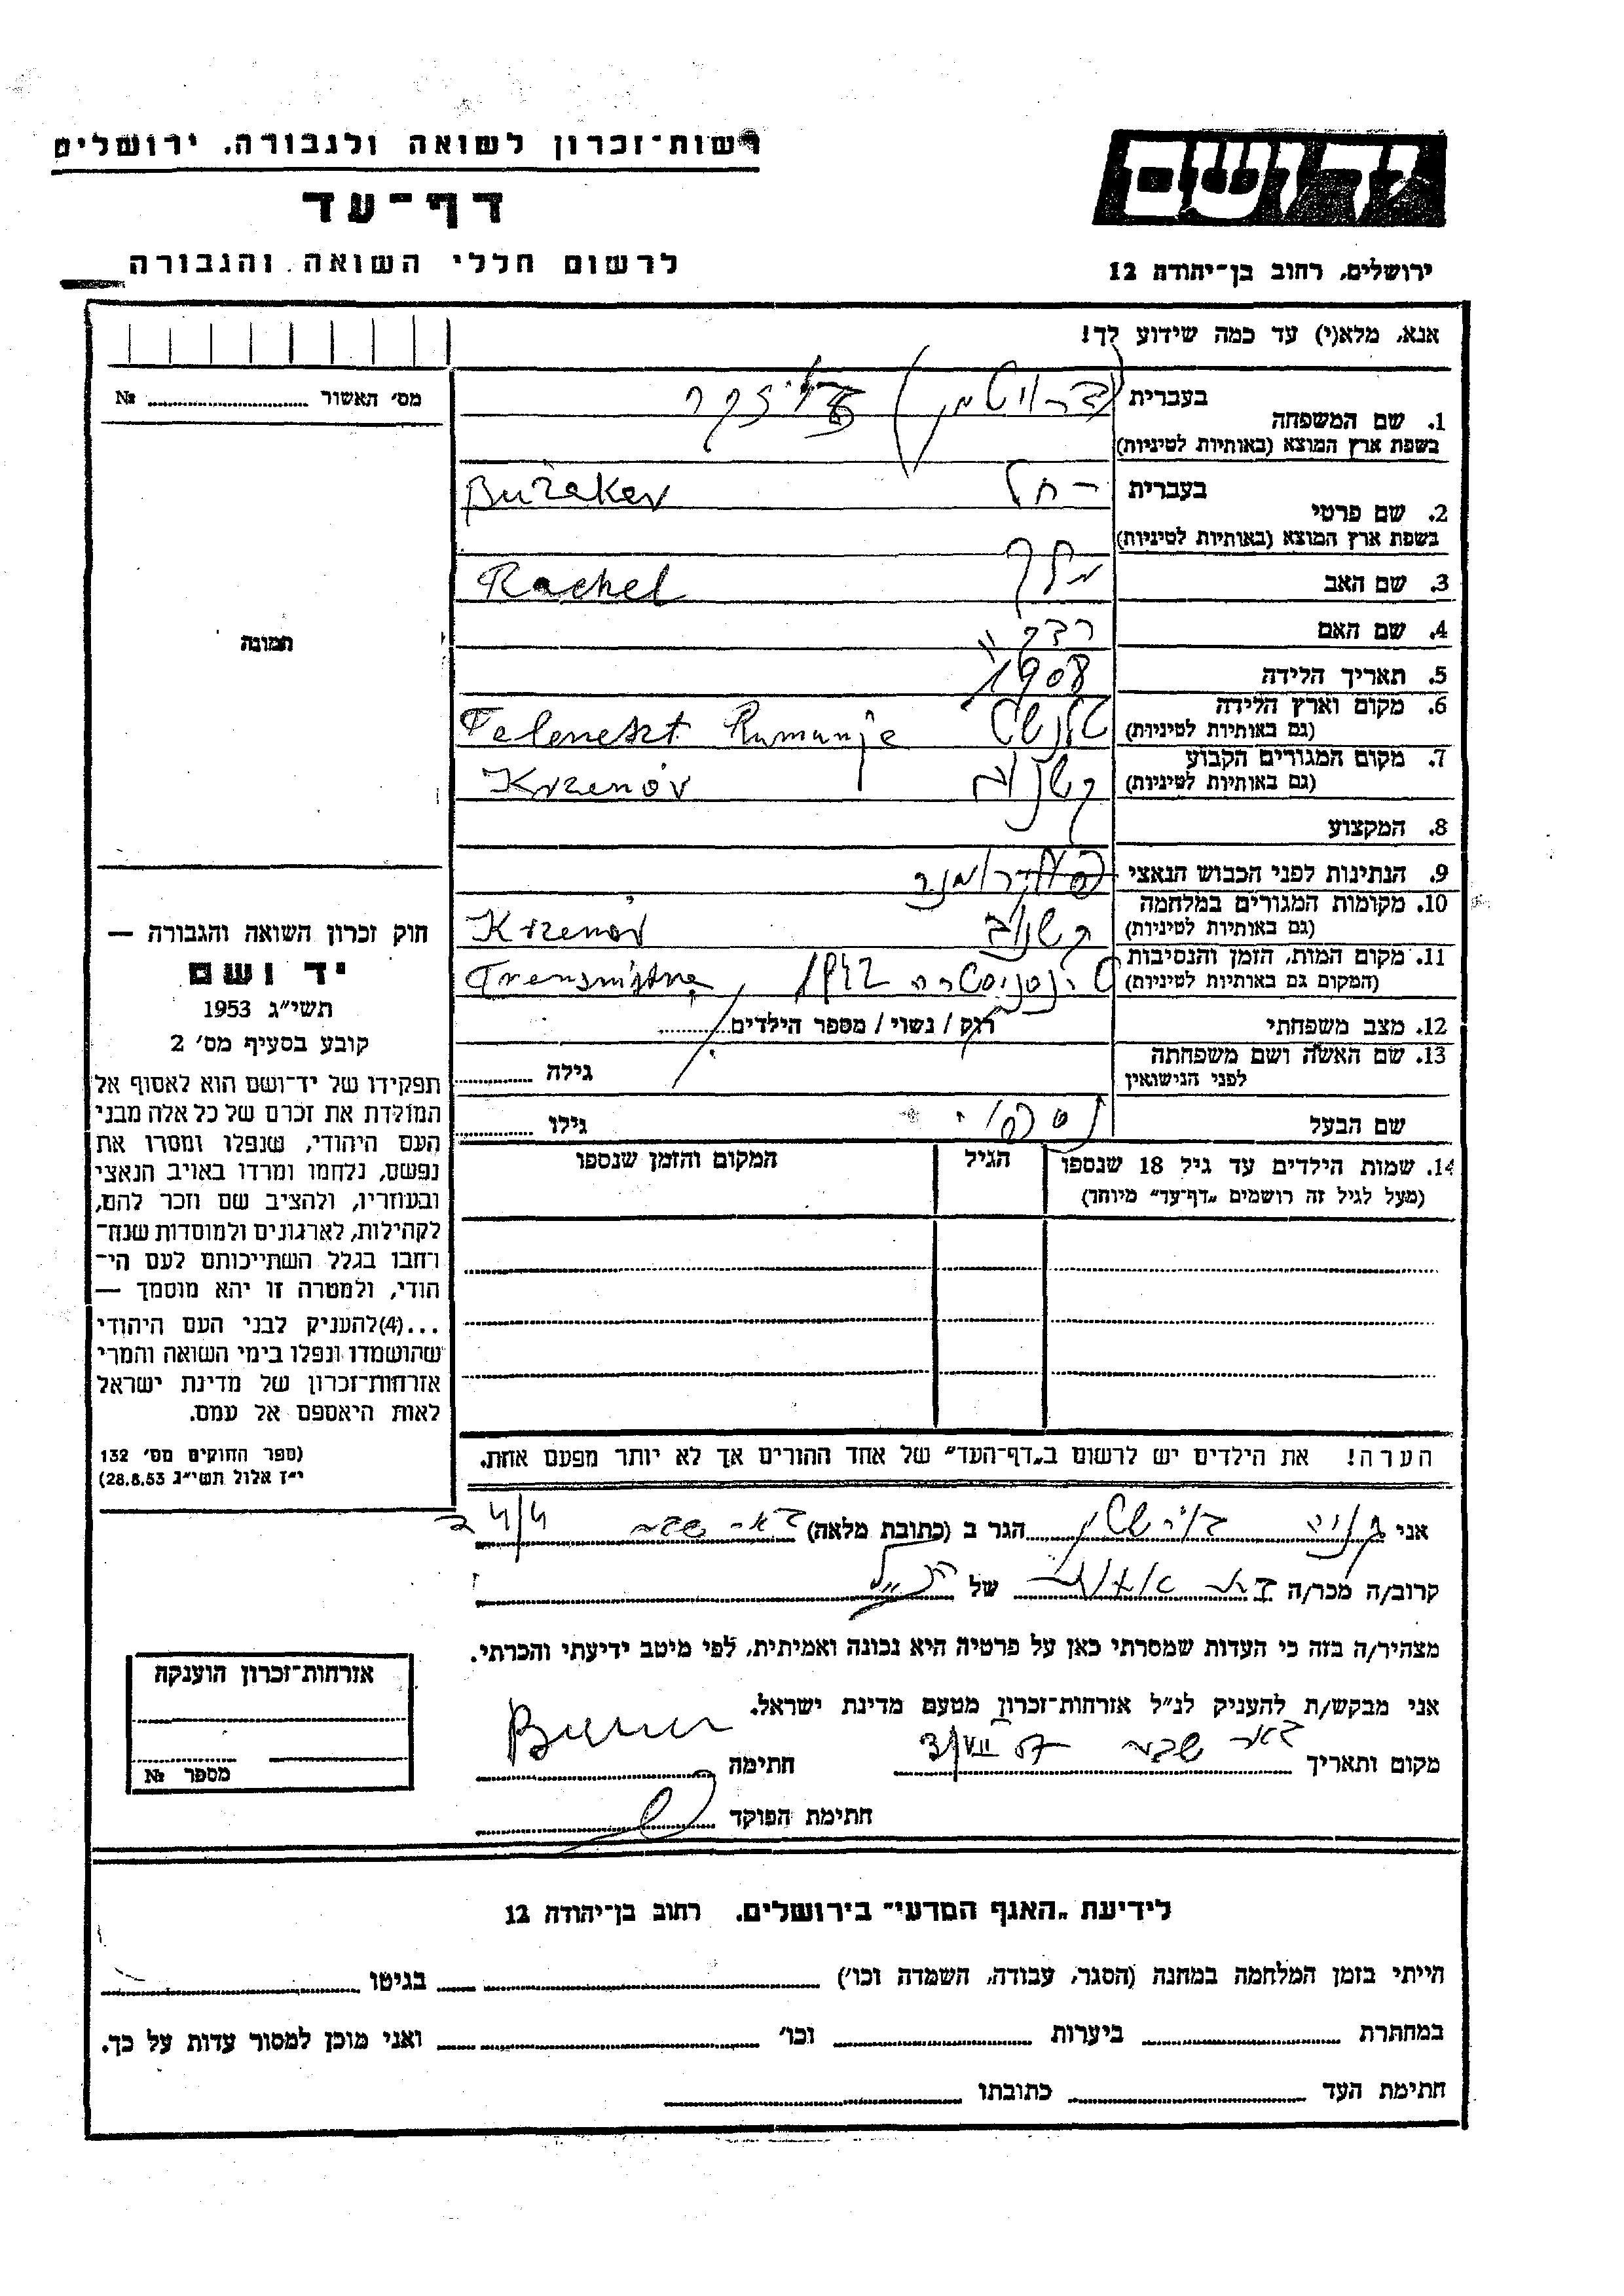 רשות־זכרון לשואה ולגבורה, ירושלים
דף־עד
לרשום חללי השואה והגבורה
יד ושם
ירושלים, רחוב בן־יהודה 12
אנא, מלא(י) עד כמה שידוע לך!
מס׳ האשור № 
1. שם המשפחה בעברית
בשפת ארץ המוצא (באותיות לטיניות)
Bużaker
2. שם פרטי בעברית רחל
בשפת ארץ המוצא (באותיות לטיניות)
Rachel
3. שם האב
4. שם האם
5. תאריך הלידה 1908
6. מקום וארץ הלידה
(גם באותיות לטיניות) Teleneszt Rumunje
7. מקום המגורים הקבוע
(גם באותיות לטיניות) Krzenów
8. המקצוע
9. הנתינות לפני הכבוש הנאצי
10. מקומות המגורים במלחמה
(גם באותיות לטיניות) Krzenów
11. מקום המות, הזמן והנסיבות
(המקום גם באותיות לטיניות) 1942
12. מצב משפחתי רוק / נשוי / מספר הילדים
13. שם האשה ושם משפחתה
לפני הנישואין גילה
שם הבעל גילו
14. שמות הילדים עד גיל 18 שנספו הגיל המקום והזמן שנספו
(מעל לגיל זה רושמים „דף־עד״ מיוחד)
הערה! את הילדים יש לרשום ב„דף־העד״ של אחד ההורים אך לא יותר מפעם אחת.
תמונה
חוק זכרון השואה והגבורה —
יד ושם
תשי״ג 1953
קובע בסעיף מס׳ 2
תפקידו של יד־ושם הוא לאסוף אל
המולדת את זכרם של כל אלה מבני
העם היהודי, שנפלו ומסרו את
נפשם, נלחמו ומרדו באויב הנאצי
ובעוזריו, ולהציב שם וזכר להם,
לקהילות, לארגונים ולמוסדות שנח־
רחבו בגלל השתייכותם לעם הי־
הודי, ולמטרה זו יהא מוסמך —
...(4) להעניק לבני העם היהודי
שהושמדו ונפלו בימי השואה והמרי
אזרחות־זכרון של מדינת ישראל
לאות היאספם אל עמם.
(ספר החוקים מס׳ 132
י״ז אלול תשי״ג 28.8.53)
אני הגר ב (כתובת מלאה) באר שבע
קרוב/ה מכר/ה של
מצהיר/ה בזה כי העדות שמסרתי כאן על פרטיה היא נכונה ואמיתית, לפי מיטב ידיעתי והכרתי.
אני מבקש/ת להעניק לנ״ל אזרחות־זכרון מטעם מדינת ישראל.
מקום ותאריך באר שבע חתימה
חתימת הפוקד
אזרחות־זכרון הוענקה
מספר №
לידיעת „האגף המדעי״ בירושלים, רחוב בן־יהודה 12
הייתי בזמן המלחמה במחנה (הסגר, עבודה, השמדה וכו׳) בגיטו
במחתרת ביערות וכו׳ ואני מוכן למסור עדות על כך.
חתימת העד כתובתו